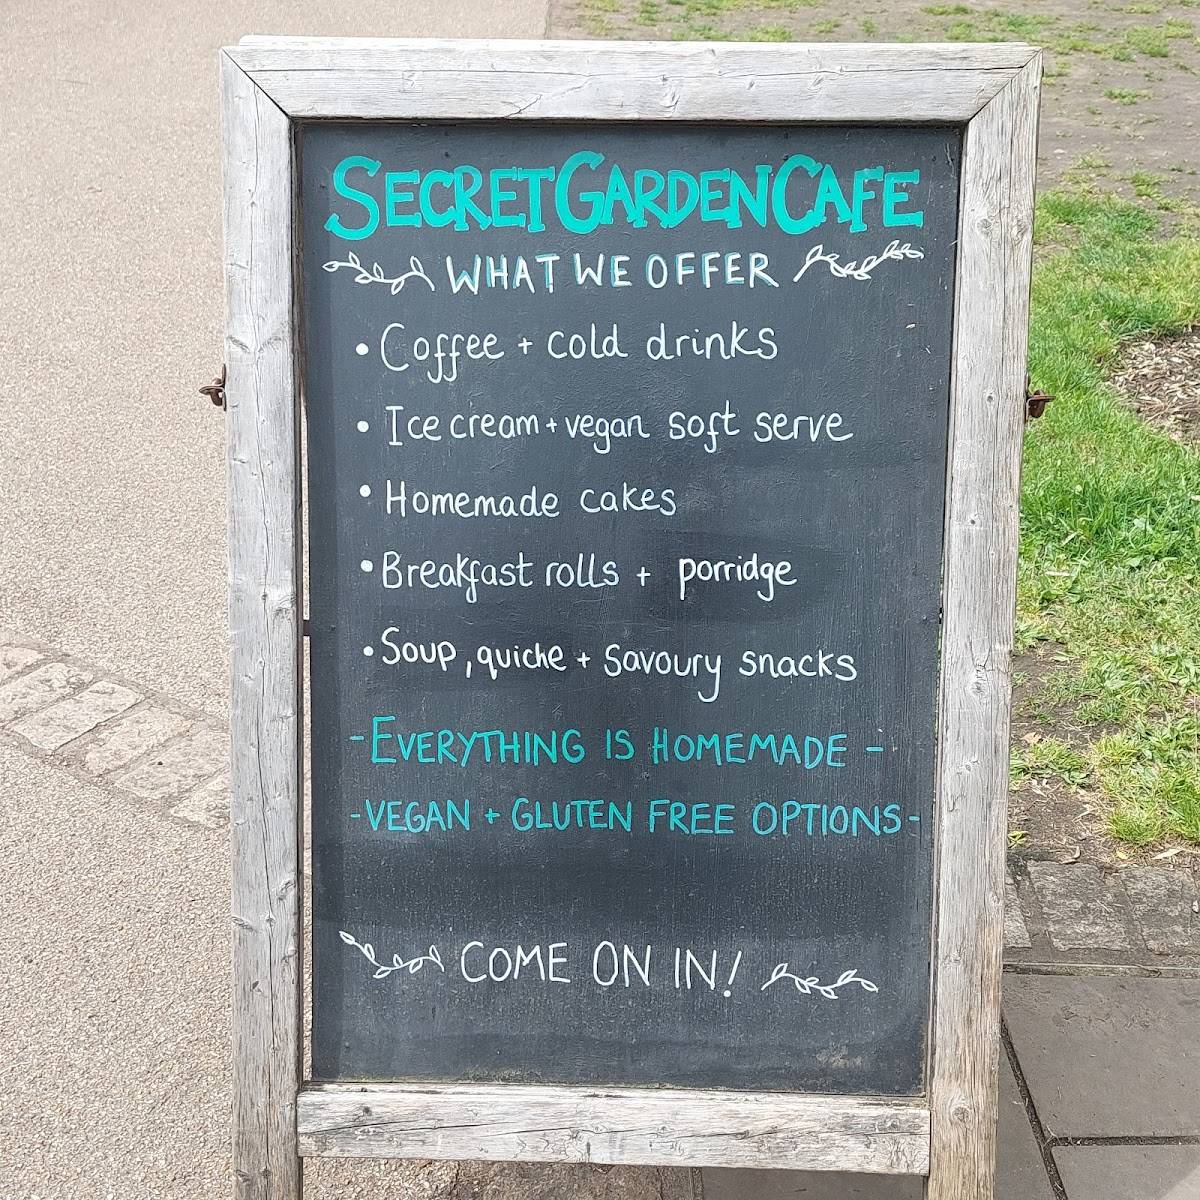 SECRET GARDEN CAFE
WHAT WE OFFER
• Coffee + cold drinks
• Ice cream + vegan soft serve
• Homemade cakes
• Breakfast rolls + porridge
• Soup, quiche + Savoury snacks
- EVERYTHING IS HOMEMADE -
- VEGAN + GLUTEN FREE OPTIONS -
COME ON IN!